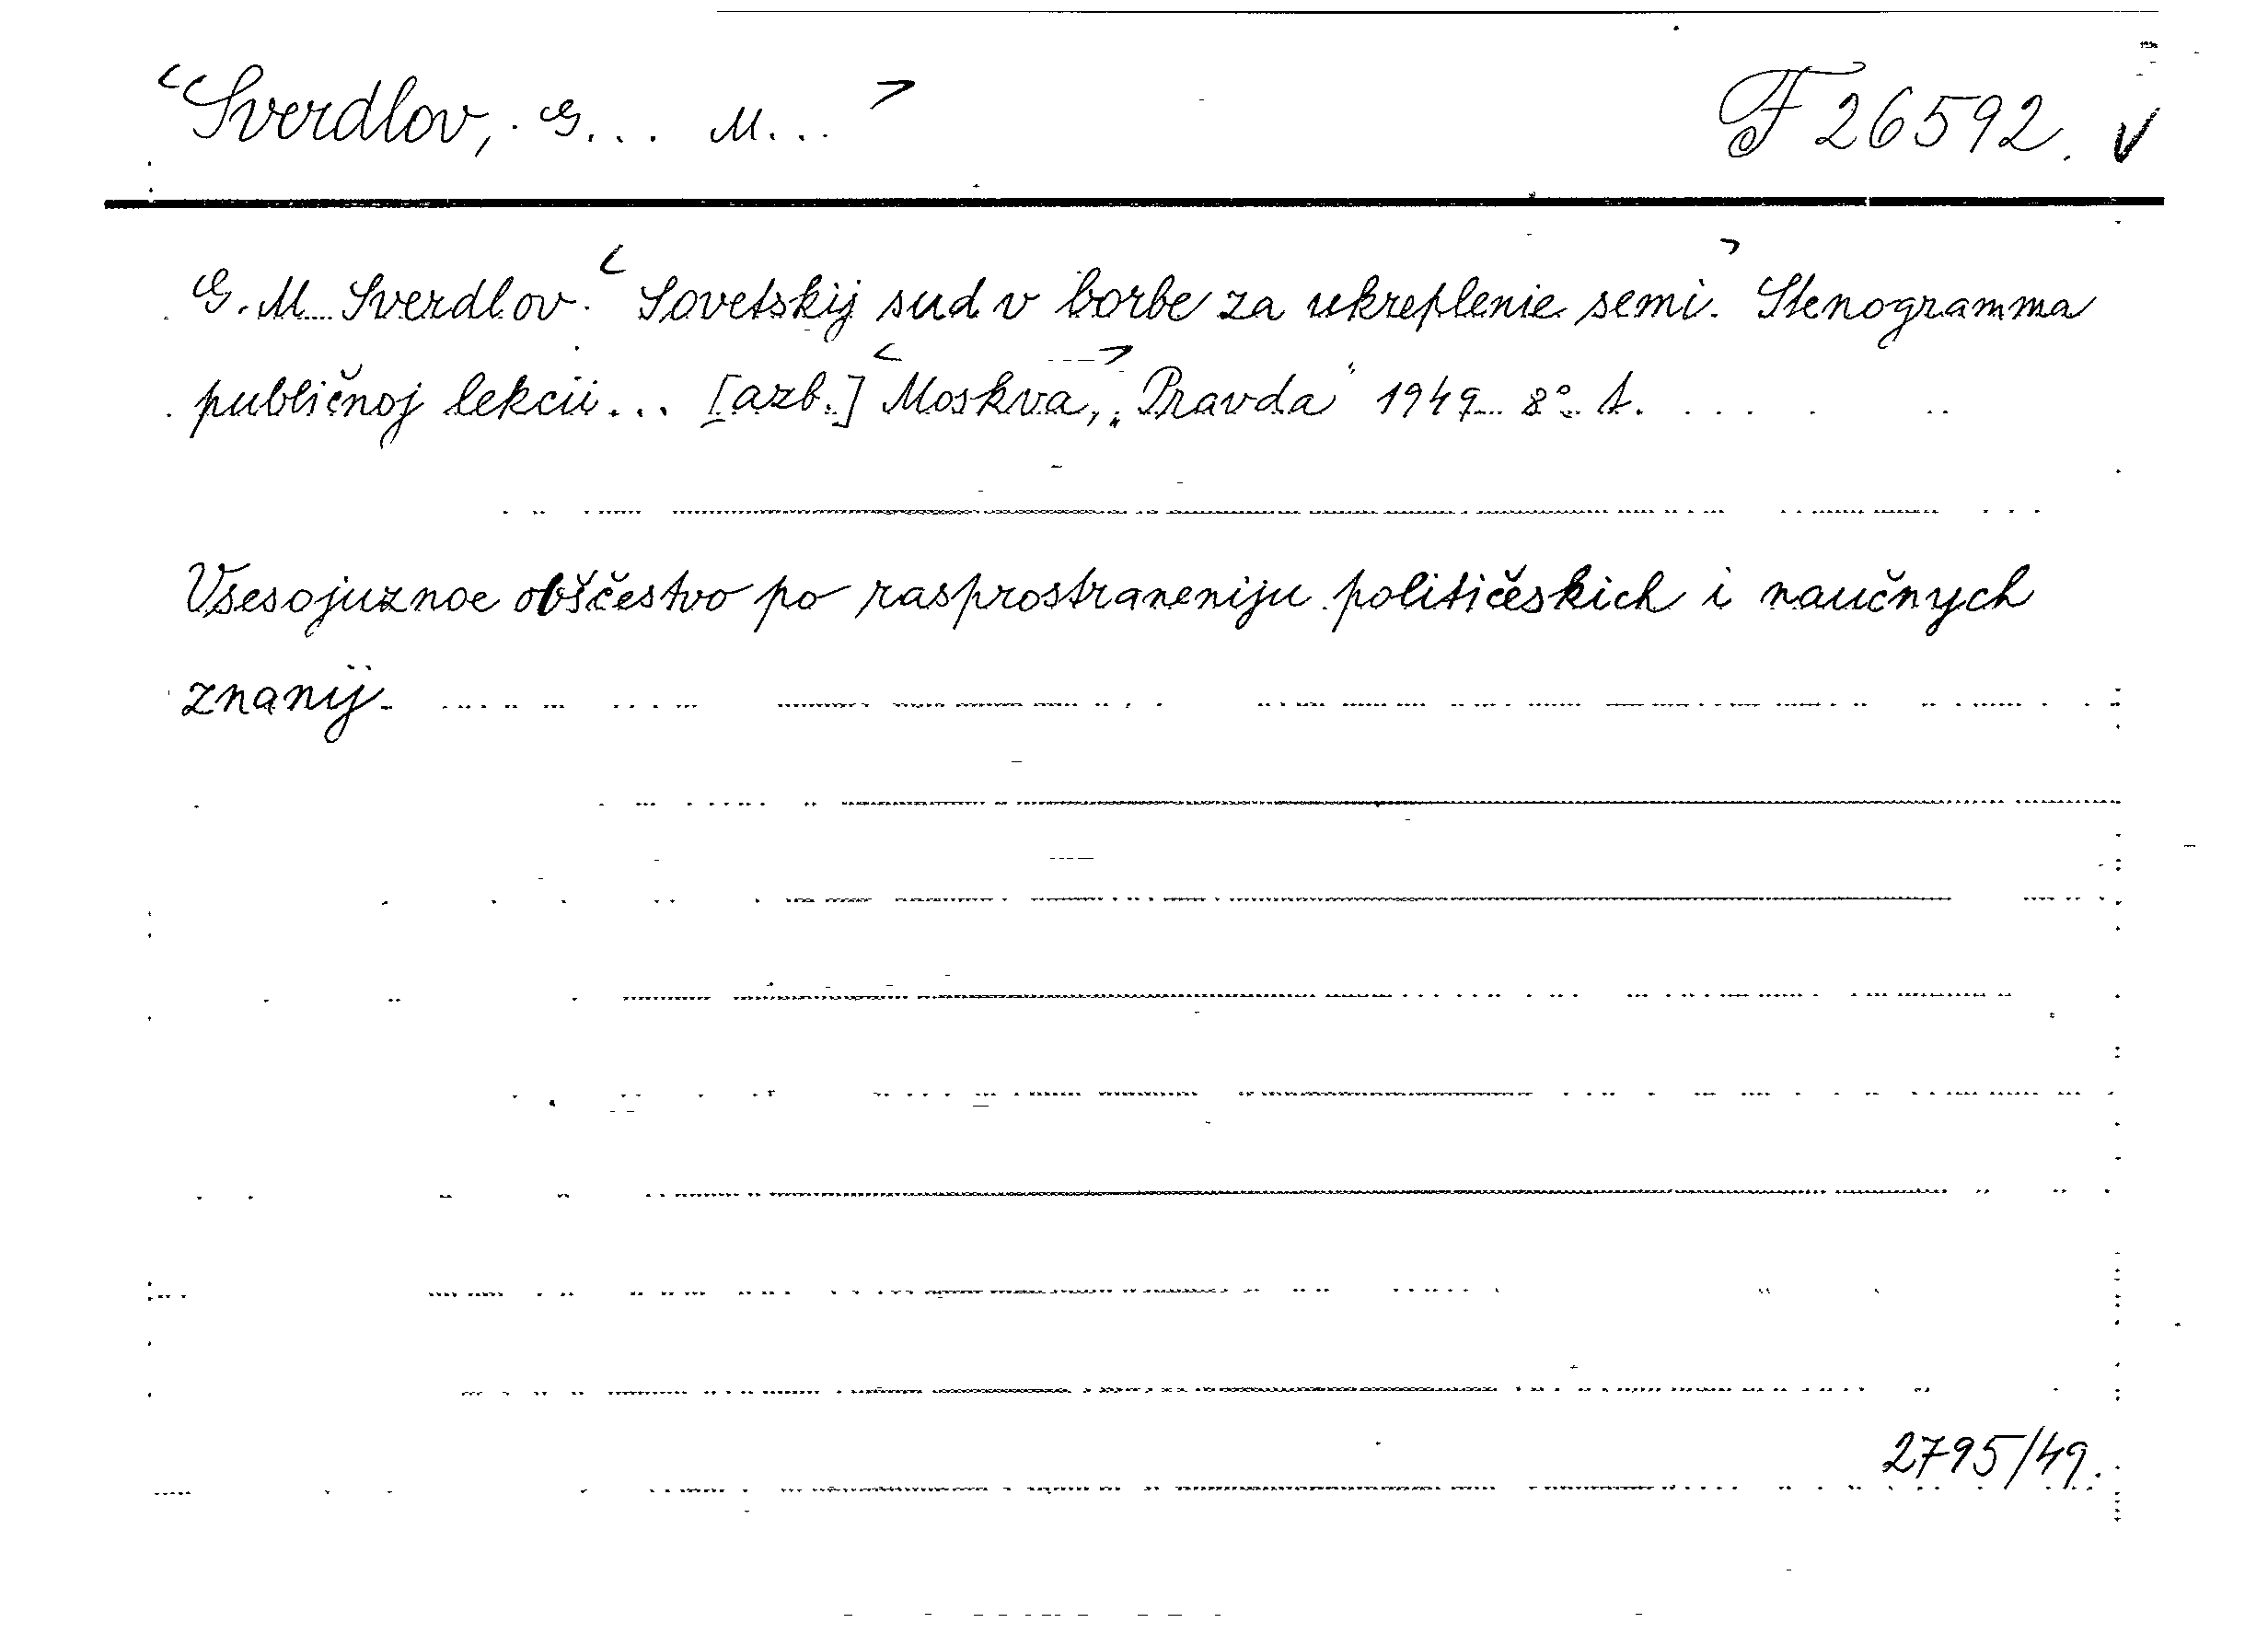 <Sverdlov, G... M...> F 26592. v
G. M. Sverdlov. <Sovetskij sud v borbe za ukreplenie semi.> Stenogramma
publičnoj lekcii... [azb.] <Moskva,> „Pravda“ 1949. 8°.
Vsesojuznoe obščestvo po rasprostraneniju političeskich i naučnych
znanij.
2795/49.